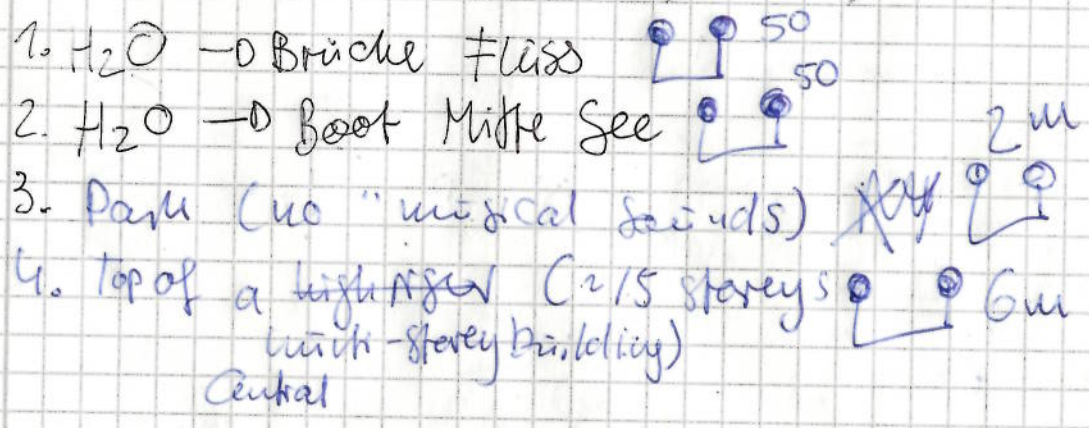 1. H2O → Brücke Flüss 50
2. H2O → Boot Mitte See 50
3. Park (no "musical sounds) 2m
4. Top of a highriser (~15 storeys 6m
multi-storey building)
Central